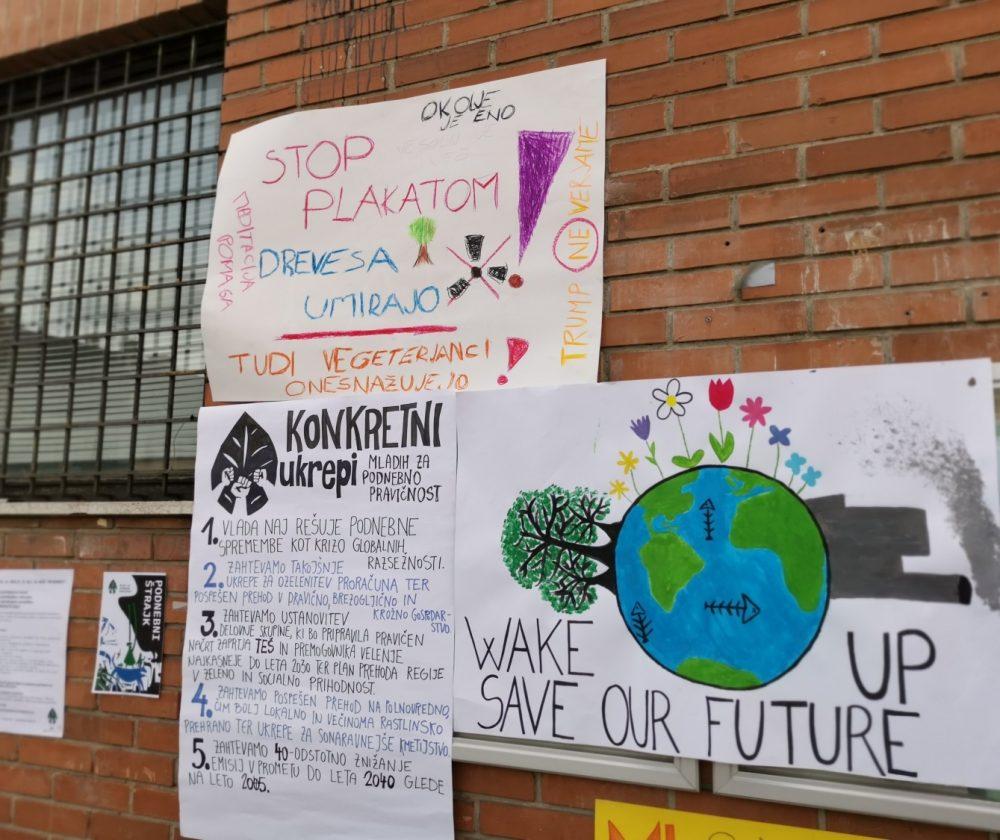 OKOLJE
JE ENO
STOP
PLAKATOM
DREVESA
UMIRAJO
TUDI VEGETERJANCI !
ONESNAŽUJEJO
MEDITACIJA
POMAGA
TRUMP NE VERJAME
KONKRETNI
ukrepi
MLADIH ZA
PODNEBNO
PRAVIČNOST
1. VLADA NAJ REŠUJE PODNEBNE
SPREMEMBE KOT KRIZO GLOBALNIH
RAZSEŽNOSTI.
2. ZAHTEVAMO TAKOJŠNJE
UKREPE ZA OZELENITEV PRORAČUNA TER
POSPEŠEN PREHOD V PRAVIČNO, BREZOGLJIČNO IN
KROŽNO GOSPODAR-
STVO.
3. ZAHTEVAMO USTANOVITEV
DELOVNE SKUPINE, KI BO PRIPRAVILA PRAVIČEN
NAČRT ZAPRTJA TEŠ IN PREMOGOVNIKA VELENJE
NAJKASNEJE DO LETA 2030 TER PLAN PREHODA REGIJE
V ZELENO IN SOCIALNO PRIHODNOST.
4. ZAHTEVAMO POSPEŠEN PREHOD NA POLNOVREDNO,
ČIM BOLJ LOKALNO IN VEČINOMA RASTLINSKO
PREHRANO TER UKREPE ZA SONARAVNEJŠE KMETIJSTVO.
5. ZAHTEVAMO 40-ODSTOTNO ZNIŽANJE
EMISIJ V PROMETU DO LETA 2040 GLEDE
NA LETO 2005.
PODNEBNI
ŠTRAJK
WAKE UP
SAVE OUR FUTURE